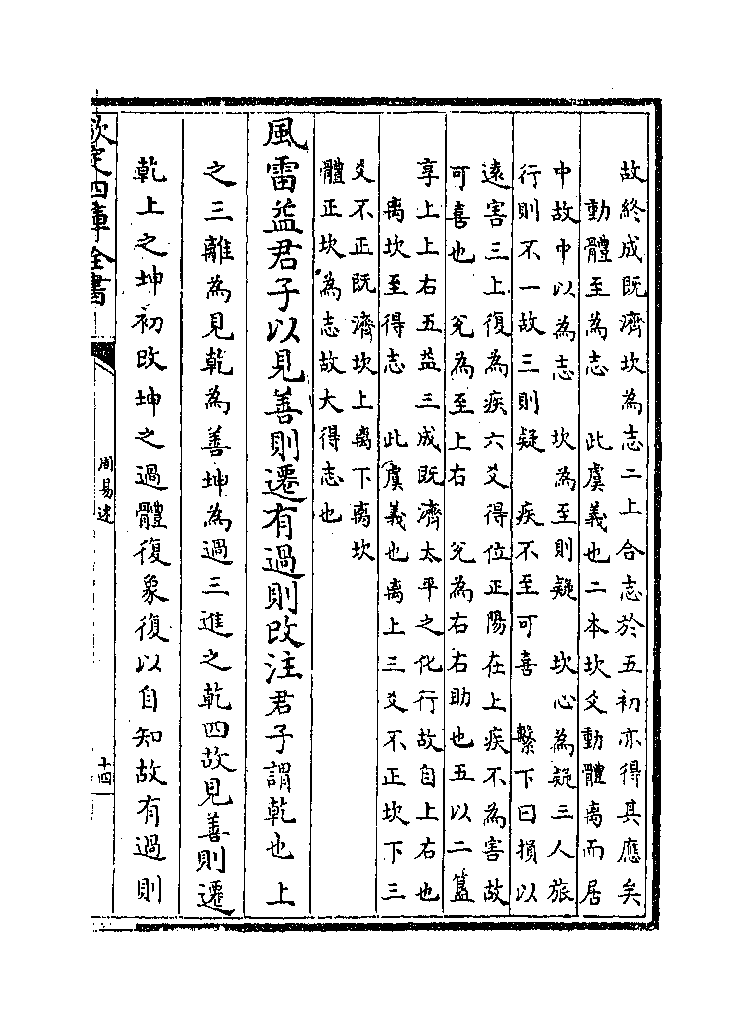 故終成既濟坎為志二上合志於五初亦得其應矣
動體至為志　此虞義也二本坎爻動體離而居
中故中以為志　坎為至則疑　坎心為疑三人旅
行則不一故三則疑　疾不至可喜　繫下曰損以
遠害三上復為疾六爻得位正陽在上疾不為害故
可喜也　兊為至上右　兊為右右助也五以二簋
享上上右五益三成既濟太平之化行故自上右也
离坎至得志　此虞義也离上三爻不正坎下三
爻不正既濟坎上离下离坎
體正坎為志故大得志也
風雷益君子以見善則遷有過則改注君子謂乾也上
之三離為見乾為善坤為過三進之乾四故見善則遷
乾上之坤初改坤之過體復象復以自知故有過則
欽定四庫全書
周易述
十四